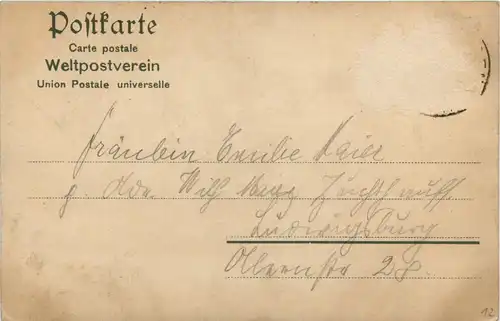 Postkarte
Carte postale
Weltpostverein
Union Postale universelle
Fräulein Emilie Maier
Adr. Wilh
Ludwigsburg
28
12